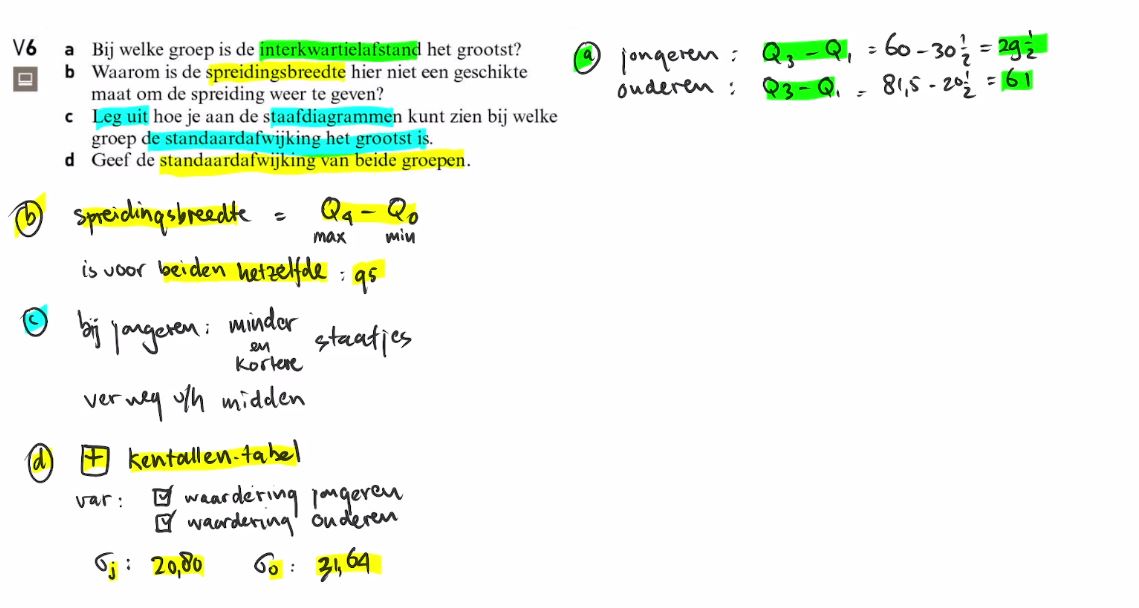 V6 a Bij welke groep is de interkwartielafstand het grootst?
b Waarom is de spreidingsbreedte hier niet een geschikte
maat om de spreiding weer te geven?
c Leg uit hoe je aan de staafdiagrammen kunt zien bij welke
groep de standaardafwijking het grootst is.
d Geef de standaardafwijking van beide groepen.
a jongeren : Q3 - Q1 = 60 - 30 1/2 = 29 1/2
ouderen : Q3 - Q1 = 81,5 - 20 1/2 = 61
b spreidingsbreedte = Q4 - Q0
max min
is voor beiden hetzelfde : 95
c bij jongeren : minder
en staafjes
kortere
ver weg v/h midden
d + kentallen-tabel
var : ☑ waardering jongeren
☑ waardering ouderen
σj : 20,80 σo : 31,64